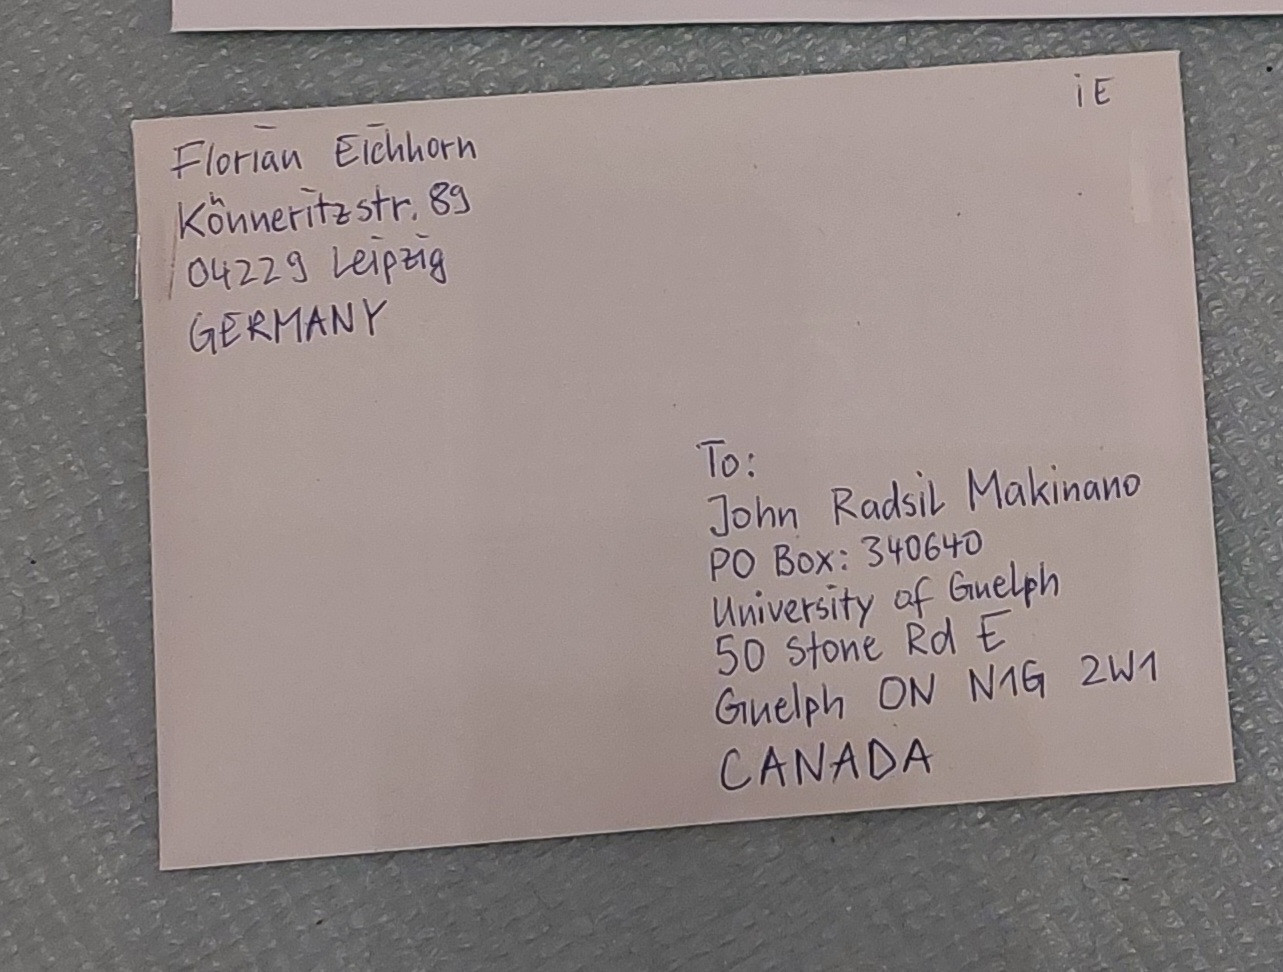 iE
Florian Eichhorn
Könneritzstr. 89
04229 Leipzig
GERMANY
To:
John Radsil Makinano
PO Box: 340640
University of Guelph
50 Stone Rd E
Guelph ON N1G 2W1
CANADA